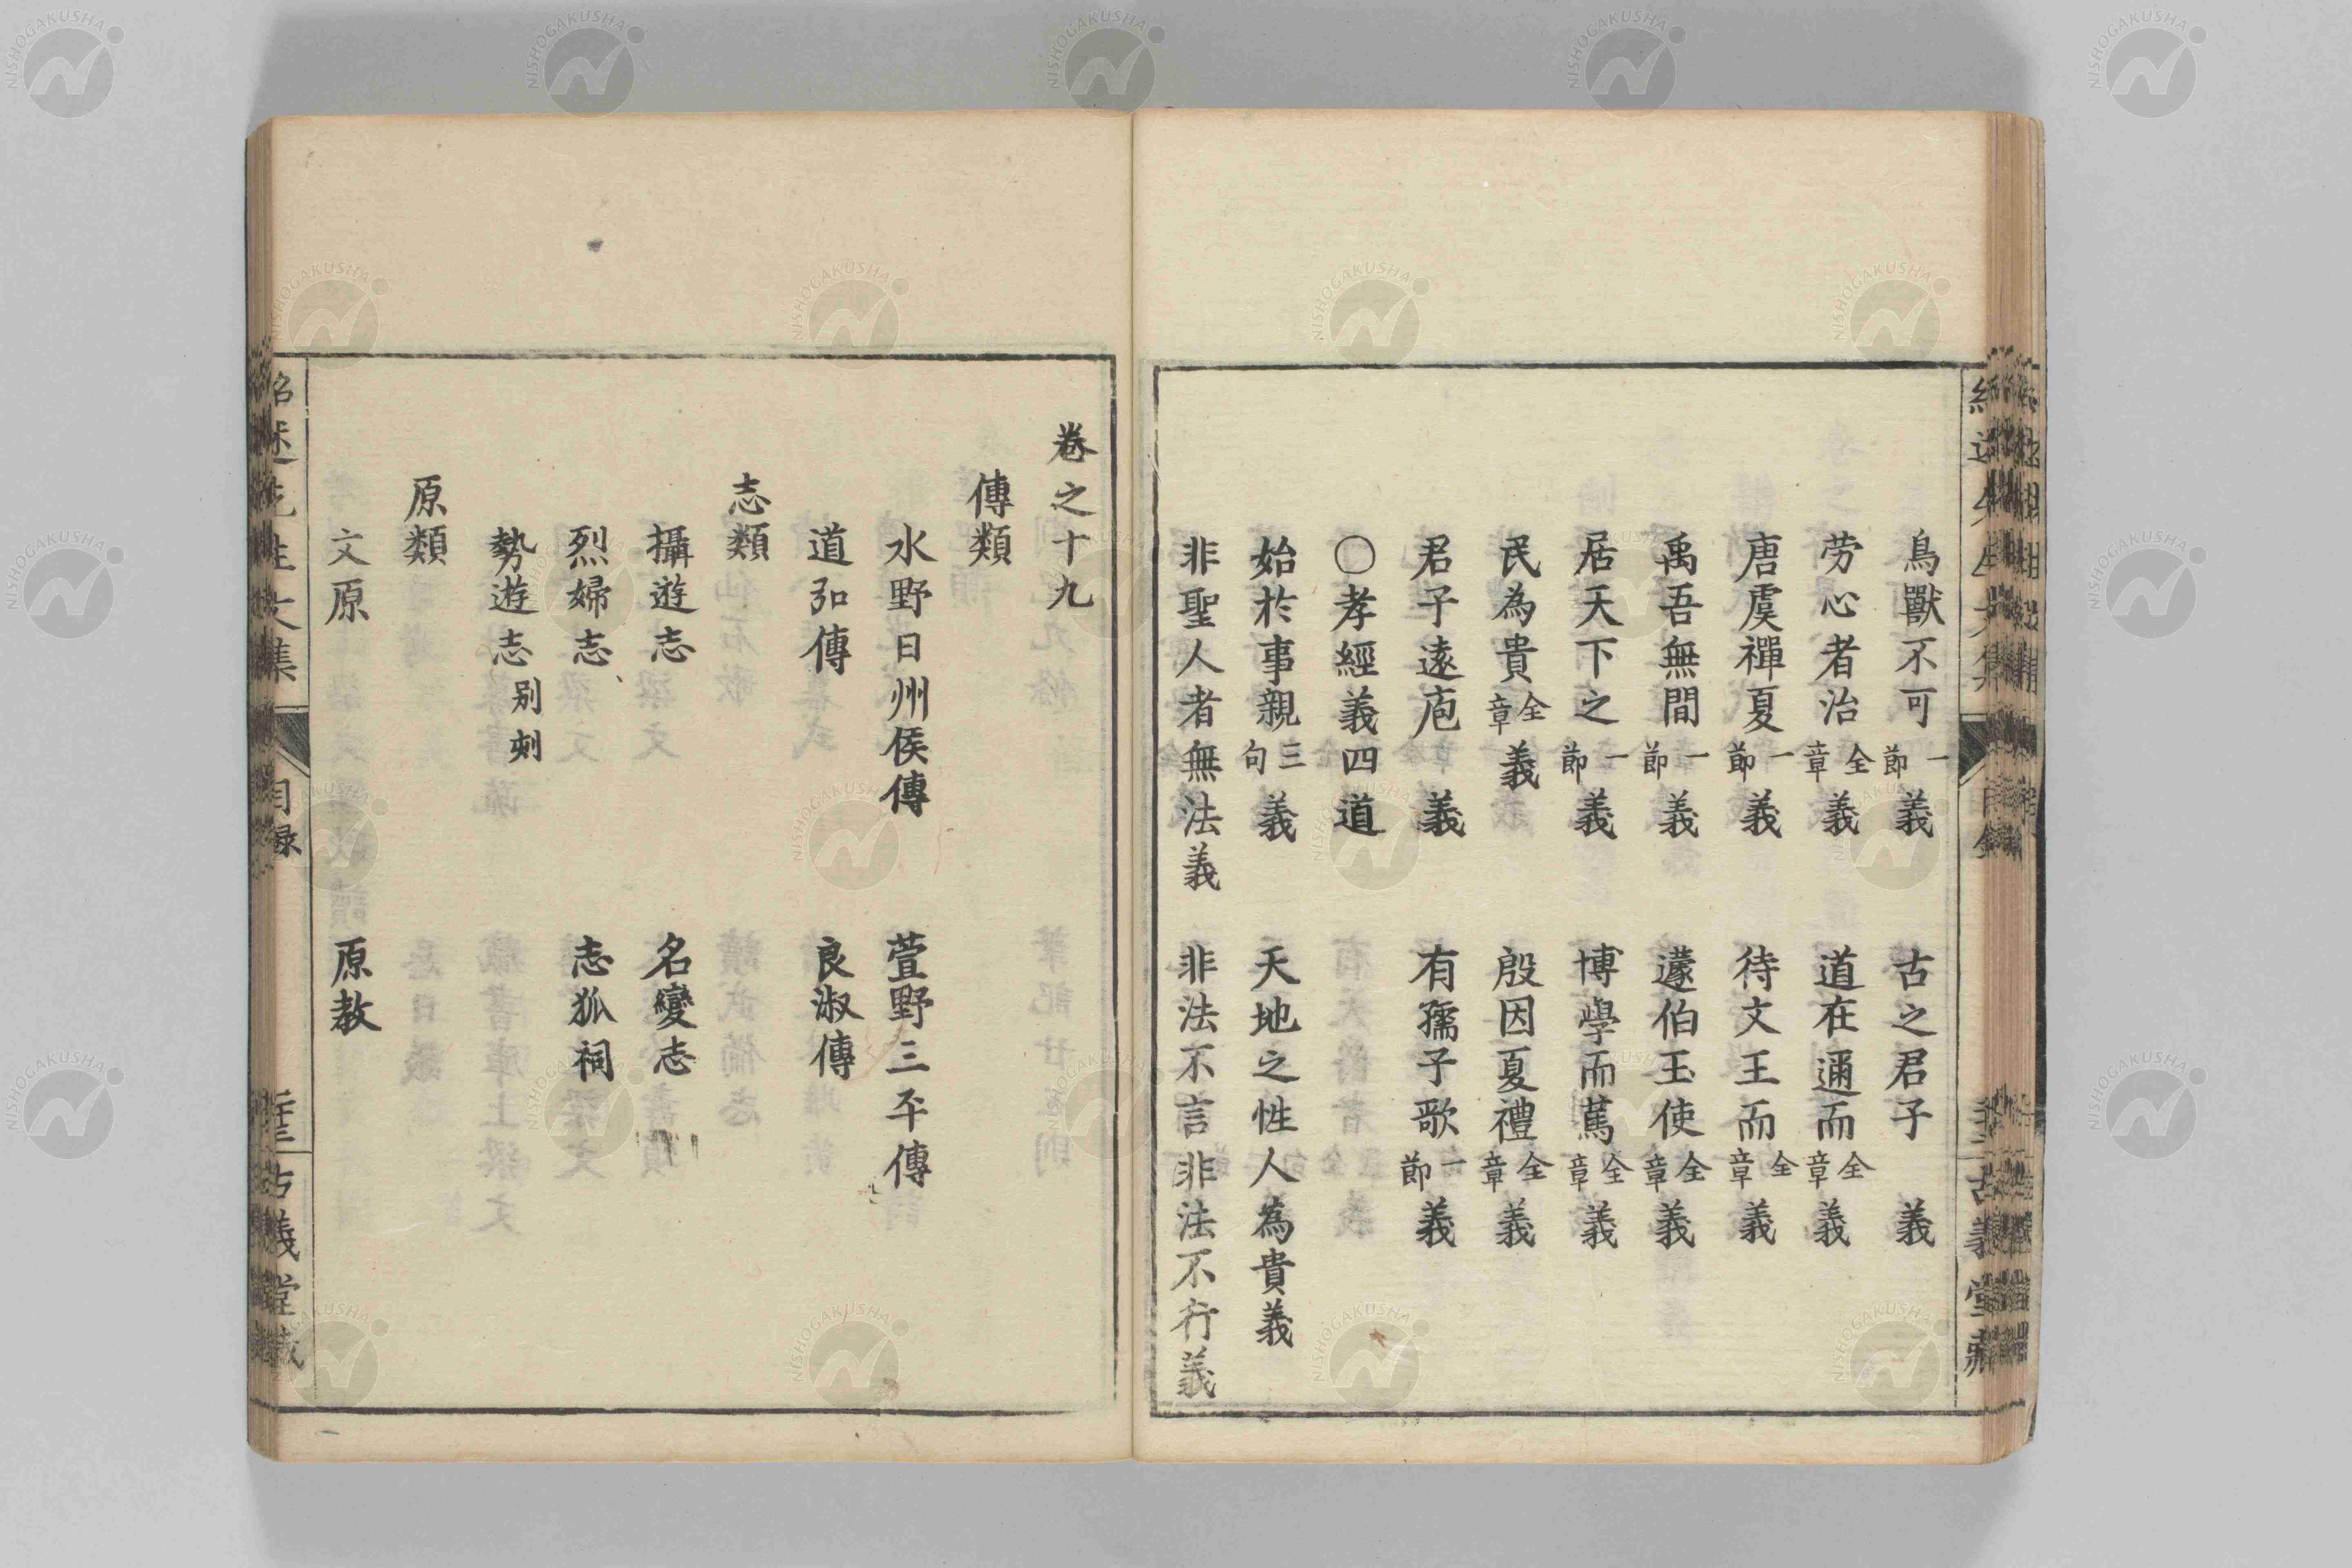 鳥獸不可一節義　古之君子　義
劳心者治全章義　道在邇而全章義
唐虞禪夏一節義　待文王而全章義
禹吾無間一節義　蘧伯玉使全章義
居天下之一節義　博學而篤全章義
民為貴全章義　殷因夏禮全章義
君子遠庖　義　有孺子歌一節義
○孝經義四道
始於事親三句義　天地之性人為貴義
非聖人者無法義　非法不言非法不行義
卷之十九
傳類
水野日州侯傳　萱野三平傳
道弘傳　良淑傳
志類
攝遊志　名變志
烈婦志　志狐祠
勢遊志別刻
原類
文原　原教
紹述先生文集　目録　古義堂藏
NISHOGAKUSHA